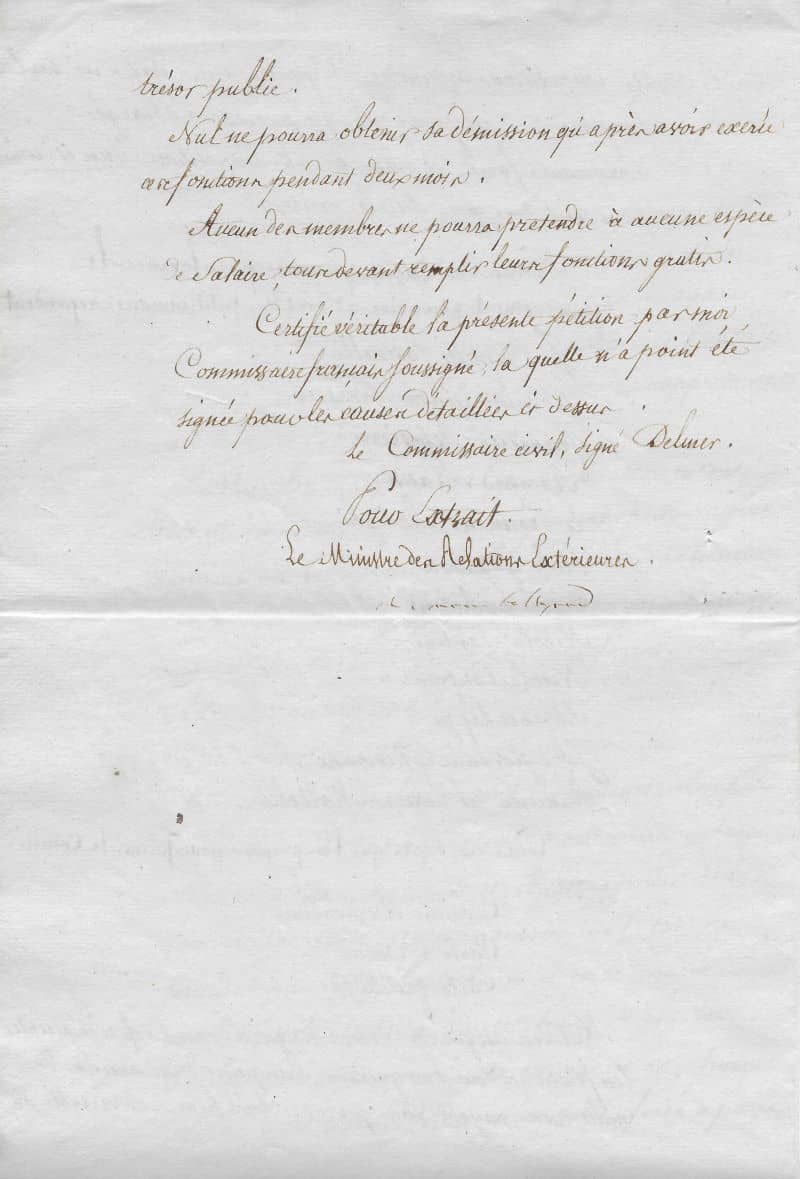 trésor public.
Nul ne pourra obtenir sa démission qu'après avoir exercé
ces fonctions pendant deux mois.
Aucun des membres ne pourra pretendre à aucune espèce
de Salaire, tous devant remplir leurs fonctions gratis.
Certifié véritable la présente pétition par moi
Commissaire français soussigné, la quelle n'a point été
signée pour les causes détaillées ci dessus.
Le Commissaire civil, signé Delmer.
Pour Extrait.
Le Ministre des Relations Extérieures.